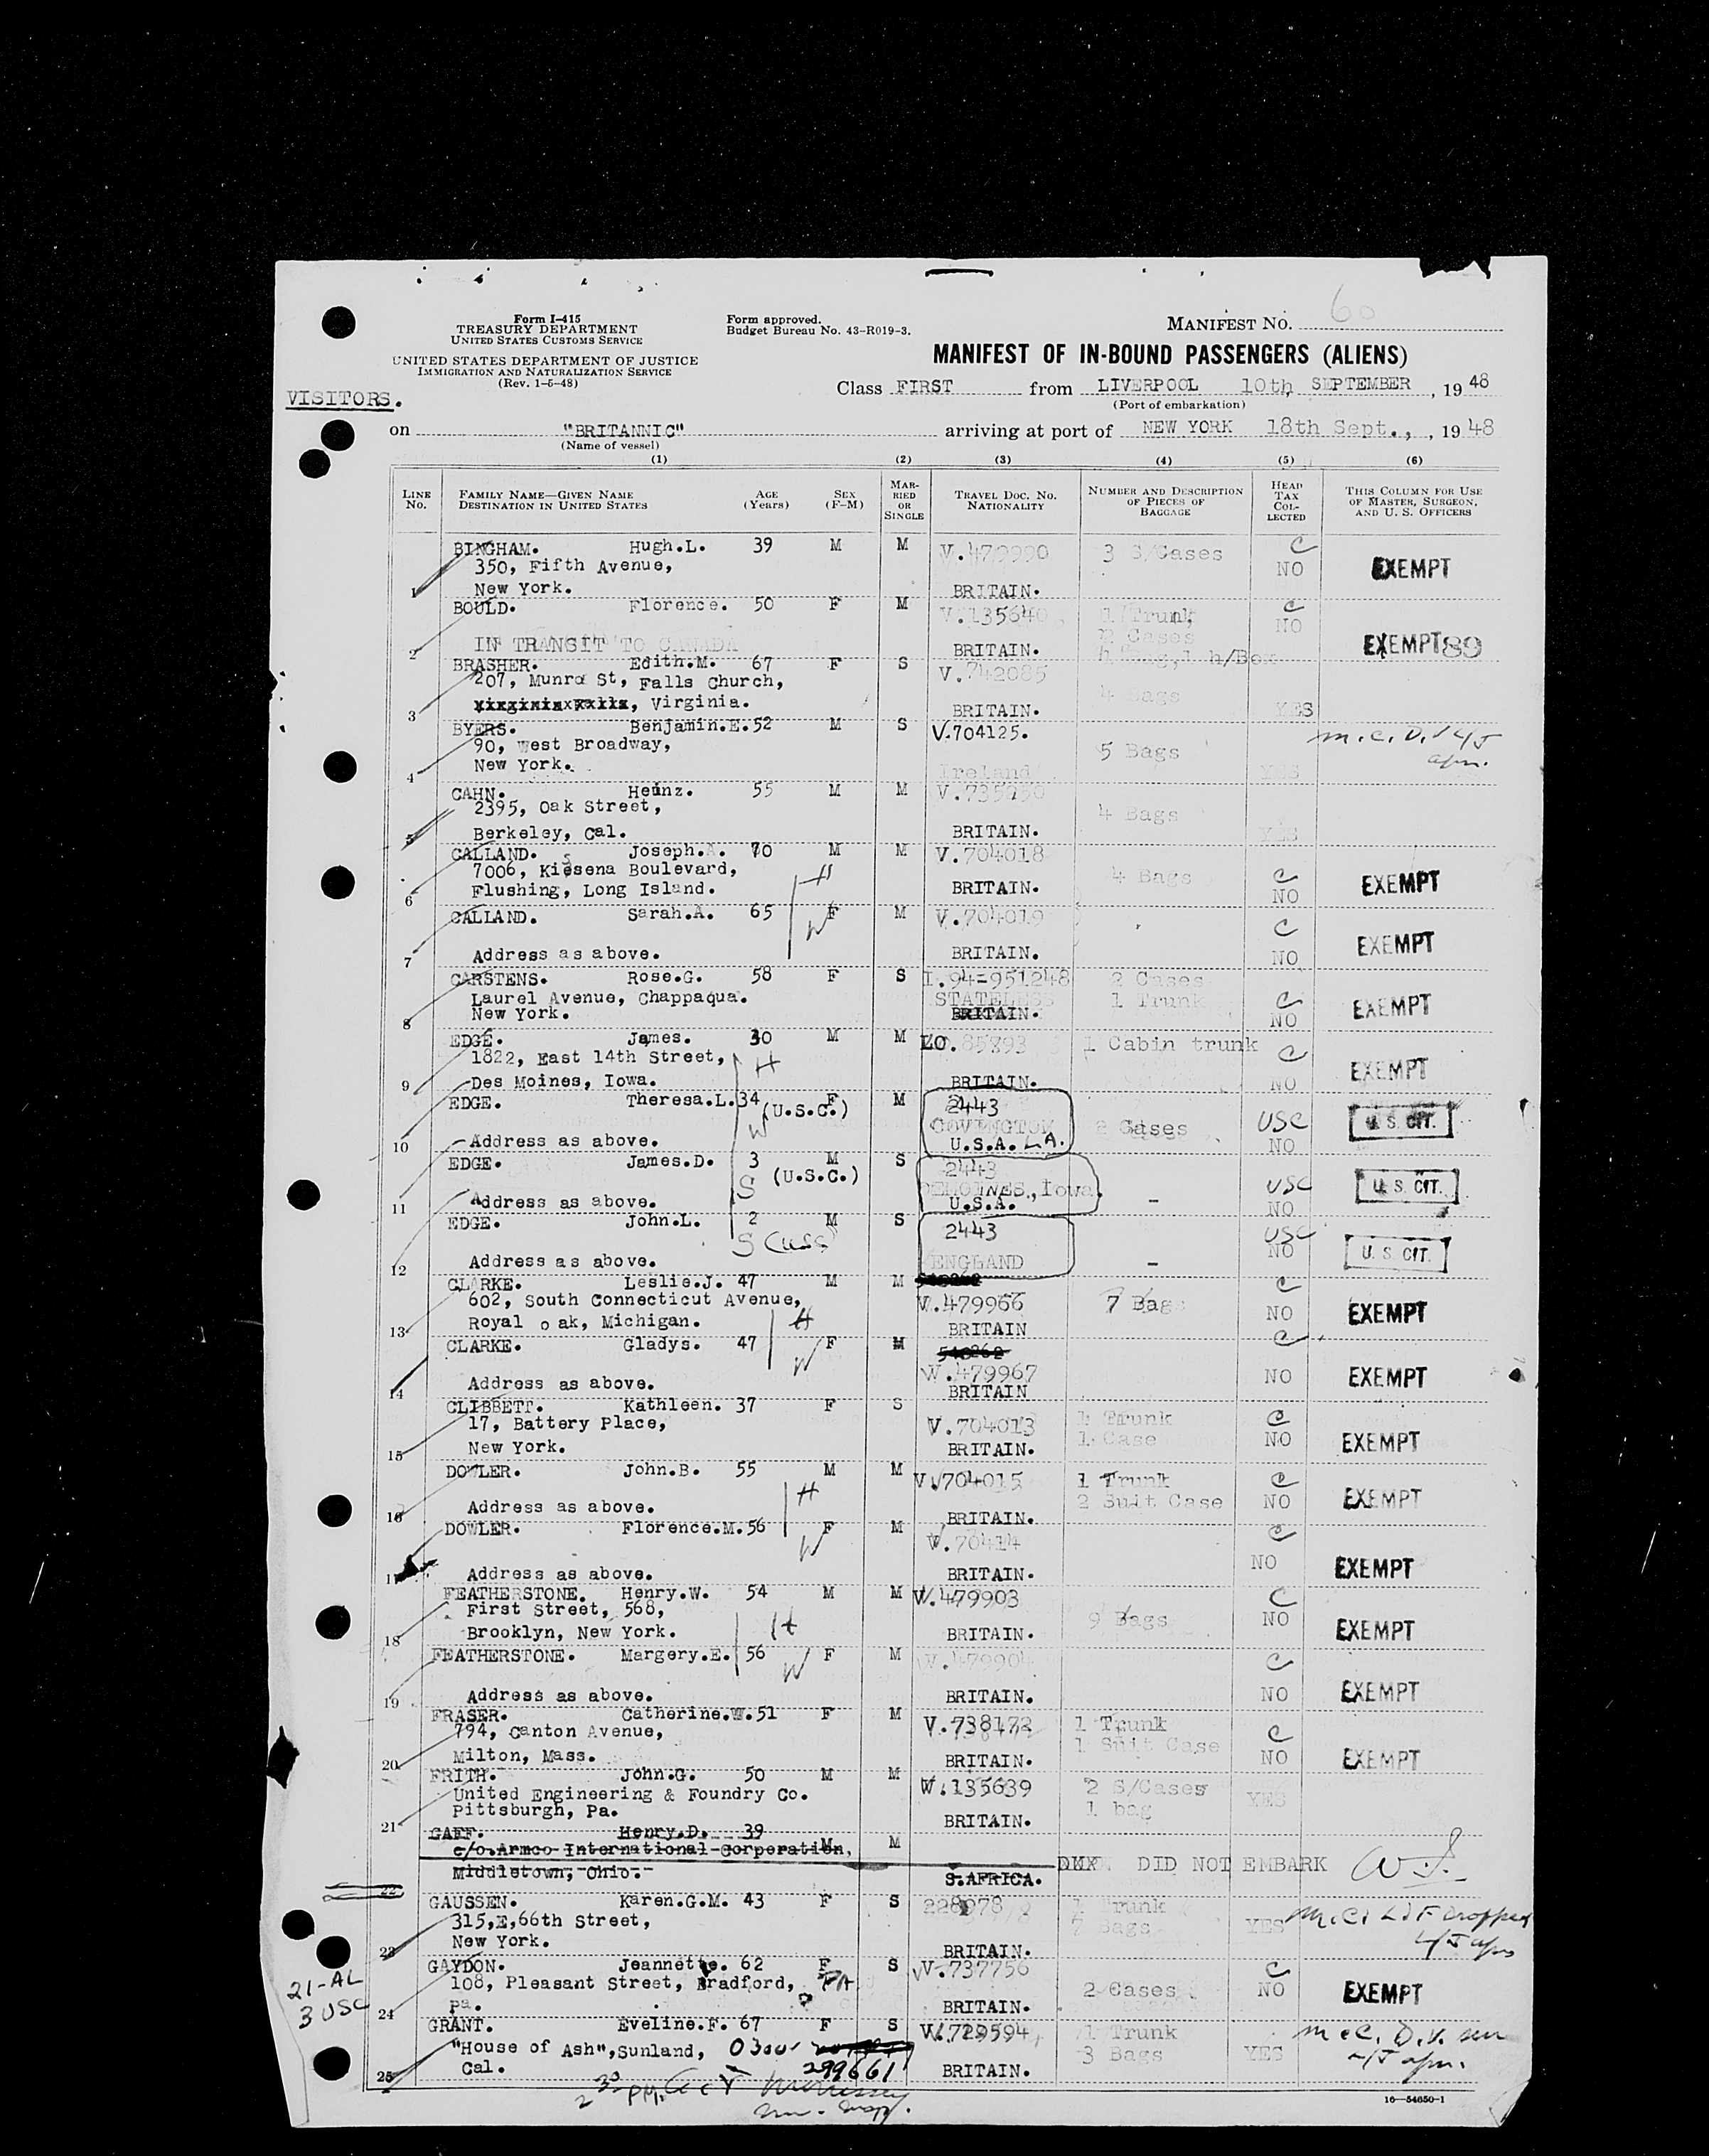 60
Form I-415
TREASURY DEPARTMENT
UNITED STATES CUSTOMS SERVICE
UNITED STATES DEPARTMENT OF JUSTICE
IMMIGRATION AND NATURALIZATION SERVICE
(Rev. 1-5-48)
Form approved.
Budget Bureau No. 43-R019-3.
MANIFEST NO.
MANIFEST OF IN-BOUND PASSENGERS (ALIENS)
Class FIRST from LIVERPOOL 10th, SEPTEMBER, 1948
(Port of embarkation)
VISITORS.
on "BRITANNIC" arriving at port of NEW YORK 18th Sept., , 1948
(Name of vessel)
(1) (2) (3) (4) (5) (6)
LINE No. FAMILY NAME—GIVEN NAME DESTINATION IN UNITED STATES AGE (Years) SEX (F-M) MARRIED OR SINGLE TRAVEL DOC. NO. NATIONALITY NUMBER AND DESCRIPTION OF PIECES OF BAGGAGE HEAD TAX COLLECTED THIS COLUMN FOR USE OF MASTER, SURGEON, AND U. S. OFFICERS
BINGHAM. Hugh.L. 39 M M V.479990 3 S/Cases C
350, Fifth Avenue, NO EXEMPT
1 New York. BRITAIN.
BOULD. Florence. 50 F M V.135640 1 Trunk C
NO
2 IN TRANSIT TO CANADA BRITAIN. 2 Cases EXEMPT 89
BRASHER. Edith.M. 67 F S V.742085 1 h/Box
207, Munro St, Falls Church, 4 Bags
3 Virginia. BRITAIN. YES
BYERS. Benjamin.E. 52 M S V.704125.
90, West Broadway, 5 Bags
4 New York. Ireland YES
CAHN. Heinz. 55 M M
2395, Oak Street, 4 Bags
5 Berkeley, Cal. BRITAIN. YES
CALLAND. Joseph.A. 70 M M V.704018
7006, Kissena Boulevard, 4 Bags C
6 Flushing, Long Island. H BRITAIN. NO EXEMPT
CALLAND. Sarah.A. 65 W F M V.704019 C
7 Address as above. BRITAIN. NO EXEMPT
CARSTENS. Rose.G. 58 F S I.94-951248 2 Cases
Laurel Avenue, Chappaqua. STATELESS 1 Trunk C
8 New York. BRITAIN. NO EXEMPT
EDGE. James. 30 M M 85893 1 Cabin trunk C
1822, East 14th Street, H
9 Des Moines, Iowa. BRITAIN. NO EXEMPT
EDGE. Theresa.L. 34 (U.S.C.) F M 2443
W COVINGTON 2 Cases USC U. S. CIT.
10 Address as above. U.S.A. LA. NO
EDGE. James.D. 3 M S 2443
S (U.S.C.) Iowa. - USC U. S. CIT.
11 Address as above. U.S.A. NO
EDGE. John.L. 2 M S 2443 USC
S NO
12 Address as above. ENGLAND - U. S. CIT.
CLARKE. Leslie.J. 47 M M C
602, South Connecticut Avenue, V.479966 7 Bags
13 Royal oak, Michigan. H BRITAIN NO EXEMPT
CLARKE. Gladys. 47 W F M C
V.479967 NO
14 Address as above. BRITAIN EXEMPT
CLIBBETT. Kathleen. 37 F S
17, Battery Place, V.704013 1 Trunk C
15 New York. BRITAIN. 1 Case NO EXEMPT
DOWLER. John.B. 55 M M V.704015 1 Trunk C
16 Address as above. H BRITAIN. 2 Suit Case NO EXEMPT
DOWLER. Florence.M. 56 W F M V.70414 C
17 Address as above. BRITAIN. NO EXEMPT
FEATHERSTONE. Henry.W. 54 M M V.479903 C
First Street, 568, 9 Bags NO
18 Brooklyn, New York. H BRITAIN. EXEMPT
FEATHERSTONE. Margery.E. 56 W F M V.479904 C
19 Address as above. BRITAIN. NO EXEMPT
FRASER. Catherine.W. 51 F M V.738172 1 Trunk
794, Canton Avenue, 1 Suit Case C
20 Milton, Mass. BRITAIN. NO EXEMPT
FRITH. John.G. 50 M M V.135639 2 S/Cases
United Engineering & Foundry Co. 1 bag YES
21 Pittsburgh, Pa. BRITAIN.
GAEF. Henry.D. 39
c/o.Armco International Corporation, M M
22 Middletown, Ohio. S.AFRICA. DID NOT EMBARK
GAUSSEN. Karen.G.M. 43 F S 228978 1 Trunk
315,E,66th Street, 7 Bags YES
23 New York. BRITAIN.
GAYDON. Jeannette. 62 F S V.737756 C
108, Pleasant Street, Bradford, PA 2 Cases NO EXEMPT
24 Pa. BRITAIN.
21-AL
3 USC
GRANT. Eveline.F. 67 F S V.729594 1 Trunk
"House of Ash",Sunland, 3 Bags YES
25 Cal. 299661 BRITAIN.
2 30 PM.
16—54650-1